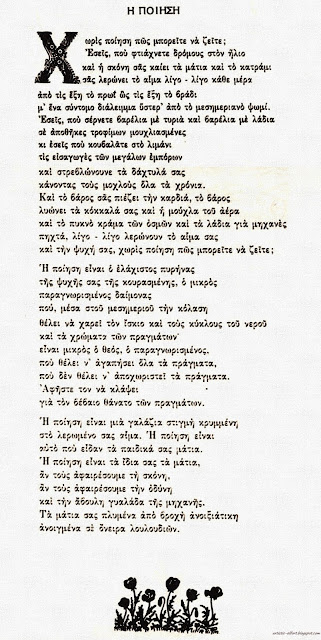 Η ΠΟΙΗΣΗ
Χωρὶς ποίηση πῶς μπορεῖτε νὰ ζεῖτε;
Ἐσεῖς, ποὺ φτιάχνετε δρόμους στὸν ἥλιο
καὶ ἡ σκόνη σᾶς καίει τὰ μάτια καὶ τὸ κατράμι
σᾶς λερώνει τὸ αἷμα λίγο - λίγο κάθε μέρα
ἀπὸ τὶς ἕξη τὸ πρωῒ ὣς τὶς ἕξη τὸ βράδι
μ' ἕνα σύντομο διάλειμμα ὕστερ' ἀπὸ τὸ μεσημεριανὸ ψωμί.
Ἐσεῖς, ποὺ σέρνετε βαρέλια μὲ τυριὰ καὶ βαρέλια μὲ λάδια
σὲ ἀποθῆκες τροφίμων μουχλιασμένες
κι ἐσεῖς ποὺ κουβαλᾶτε στὸ λιμάνι
τὶς εἰσαγωγὲς τῶν μεγάλων ἐμπόριων
καὶ στρεβλώνουνε τὰ δάχτυλά σας
κάνοντας τοὺς μοχλοὺς ὅλα τὰ χρόνια.
Καὶ τὸ βάρος σᾶς πιέζει τὴν καρδιά, τὸ βάρος
λυώνει τὰ κόκκαλά σας καὶ ἡ μούχλα τοῦ ἀέρα
καὶ τὸ πυκνὸ κράμα τῶν ὀσμῶν καὶ τὰ λάδια γιὰ μηχανὲς
πηχτά, λίγο - λίγο λερώνουν τὸ αἷμα σας
καὶ τὴν ψυχή σας, χωρὶς ποίηση πῶς μπορεῖτε νὰ ζεῖτε;
Ἡ ποίηση εἶναι ὁ ἐλάχιστος πυρήνας
τῆς ψυχῆς σας τῆς κουρασμένης, ὁ μικρὸς
παραγνωρισμένος δαίμονας
πού, μέσα στοῦ μεσημεριοῦ τὴν κόλαση
θέλει νὰ χαρεῖ τὸν ἴσκιο καὶ τοὺς κύκλους τοῦ νεροῦ
καὶ τὰ χρώματα τῶν πραγμάτων·
εἶναι μικρὸς ὁ θεός, ὁ παραγνωρισμένος,
ποὺ θέλει ν' ἀγαπήσει ὅλα τὰ πράγματα,
ποὺ δὲν θέλει ν' ἀποχωριστεῖ τὰ πράγματα.
Ἀφῆστε τον νὰ κλάψει
γιὰ τὸν βέβαιο θάνατο τῶν πραγμάτων.
Ἡ ποίηση εἶναι μιὰ γαλάζια στιγμὴ κρυμμένη
στὸ λερωμένο σας αἷμα. Ἡ ποίηση εἶναι
αὐτὸ ποὺ εἶδαν τὰ παιδικά σας μάτια.
Ἡ ποίηση εἶναι τὰ ἴδια σας τὰ μάτια,
ἂν τοὺς ἀφαιρέσουμε τὴ σκόνη,
ἂν τοὺς ἀφαιρέσουμε τὴν ὀδύνη
καὶ τὴν ἄβουλη γυαλάδα τῆς μηχανῆς.
Τὰ μάτια σας πλυμένα ἀπὸ βροχὴ ἀνοιξιάτικη
ἀνοιγμένα σὲ ὄνειρα λουλουδιῶν.